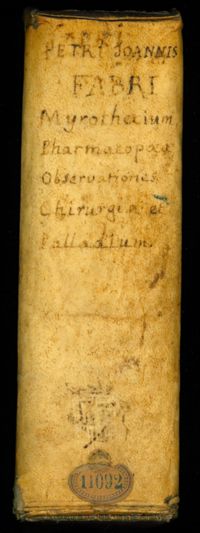 PETRI JOANNIS
FABRI
Myrothecium
Pharmacopœa
Observationes
Chirurgia et
Palladium
11092